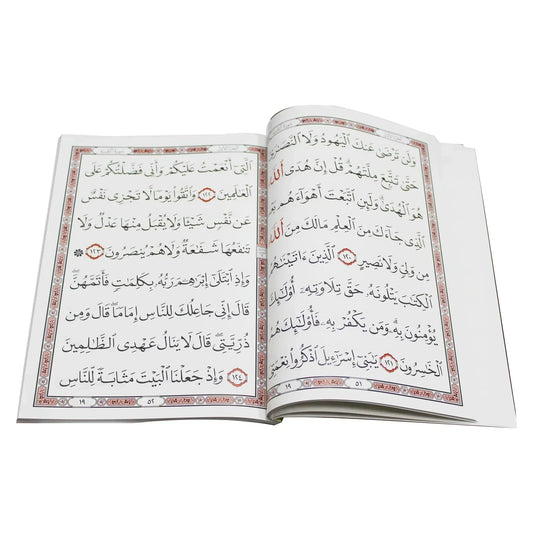 وَلَن تَرْضَىٰ عَنكَ ٱلْيَهُودُ وَلَا ٱلنَّصَٰرَىٰ
حَتَّىٰ تَتَّبِعَ مِلَّتَهُمْ ۗ قُلْ إِنَّ هُدَى ٱللَّهِ
هُوَ ٱلْهُدَىٰ ۗ وَلَئِنِ ٱتَّبَعْتَ أَهْوَآءَهُم بَعْدَ
ٱلَّذِى جَآءَكَ مِنَ ٱلْعِلْمِ ۙ مَا لَكَ مِنَ ٱللَّهِ
مِن وَلِىٍّ وَلَا نَصِيرٍ ١٢٠ ٱلَّذِينَ ءَاتَيْنَٰهُمُ
ٱلْكِتَٰبَ يَتْلُونَهُۥ حَقَّ تِلَاوَتِهِۦٓ أُو۟لَٰٓئِكَ
يُؤْمِنُونَ بِهِۦ ۗ وَمَن يَكْفُرْ بِهِۦ فَأُو۟لَٰٓئِكَ هُمُ
ٱلْخَٰسِرُونَ ١٢١ يَٰبَنِىٓ إِسْرَٰٓءِيلَ ٱذْكُرُوا۟ نِعْمَتِىَ
١٩ ٥١
ٱلَّتِىٓ أَنْعَمْتُ عَلَيْكُمْ وَأَنِّى فَضَّلْتُكُمْ عَلَى
ٱلْعَٰلَمِينَ ١٢٢ وَٱتَّقُوا۟ يَوْمًا لَّا تَجْزِى نَفْسٌ
عَن نَّفْسٍ شَيْـًٔا وَلَا يُقْبَلُ مِنْهَا عَدْلٌ وَلَا
تَنفَعُهَا شَفَٰعَةٌ وَلَا هُمْ يُنصَرُونَ ١٢٣ ۞
وَإِذِ ٱبْتَلَىٰٓ إِبْرَٰهِـۧمَ رَبُّهُۥ بِكَلِمَٰتٍ فَأَتَمَّهُنَّ ۖ
قَالَ إِنِّى جَاعِلُكَ لِلنَّاسِ إِمَامًا ۖ قَالَ وَمِن
ذُرِّيَّتِى ۖ قَالَ لَا يَنَالُ عَهْدِى ٱلظَّٰلِمِينَ
١٢٤ وَإِذْ جَعَلْنَا ٱلْبَيْتَ مَثَابَةً لِّلنَّاسِ
١٩ ٥٢